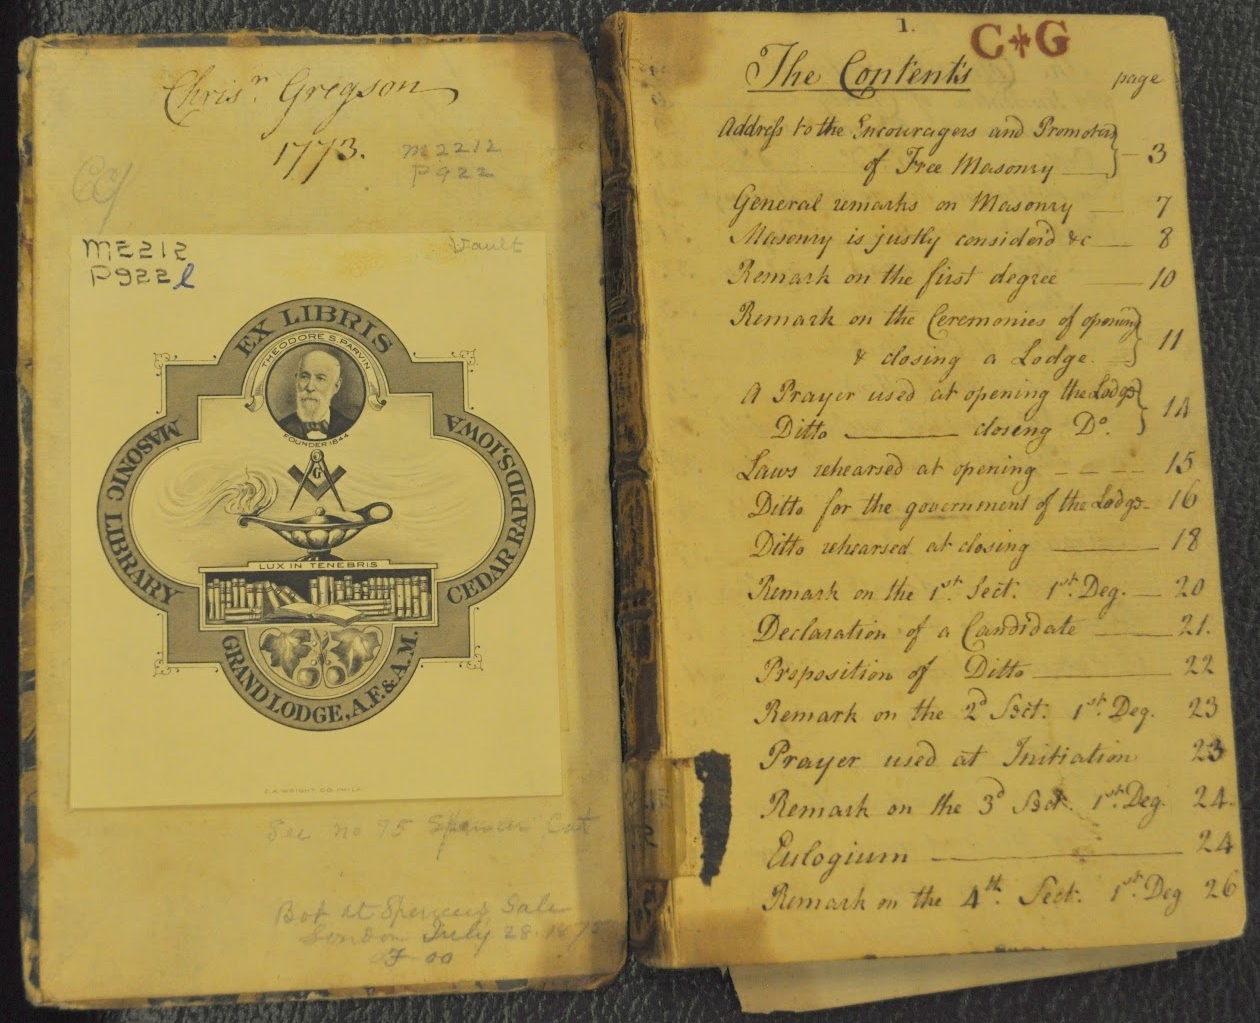 Chris.r Gregson
1773.
M2212
P922
ME212
P922l
Vault
EX LIBRIS
THEODORE S. PARVIN
FOUNDER 1844
IOWA MASONIC LIBRARY
CEDAR RAPIDS, IOWA
G
LUX IN TENEBRIS
GRAND LODGE, A.F. & A.M.
E.A. WRIGHT CO. PHILA.
See no 75 Spencer Cat
Bot at Spencer's Sale
London July 28. 1875
1.
C*G
The Contents
page
Address to the Encouragers and Promoters
of Free Masonry 3
General remarks on Masonry 7
Masonry is justly consider'd &c 8
Remark on the first degree 10
Remark on the Ceremonies of opening
& closing a Lodge. 11
A Prayer used at opening the Lodge
Ditto closeng Do. 14
Laws rehearsed at opening 15
Ditto for the government of the Lodge 16
Ditto rehearsed at closing 18
Remark on the 1st Sect: 1st Deg. 20
Declaration of a Candidate 21.
Proposition of Ditto 22
Remark on the 2d Sect: 1st Deg. 23
Prayer used at Initiation 23
Remark on the 3d Sect. 1st Deg. 24.
Eulogium 24
Remark on the 4th Sect: 1st Deg 26